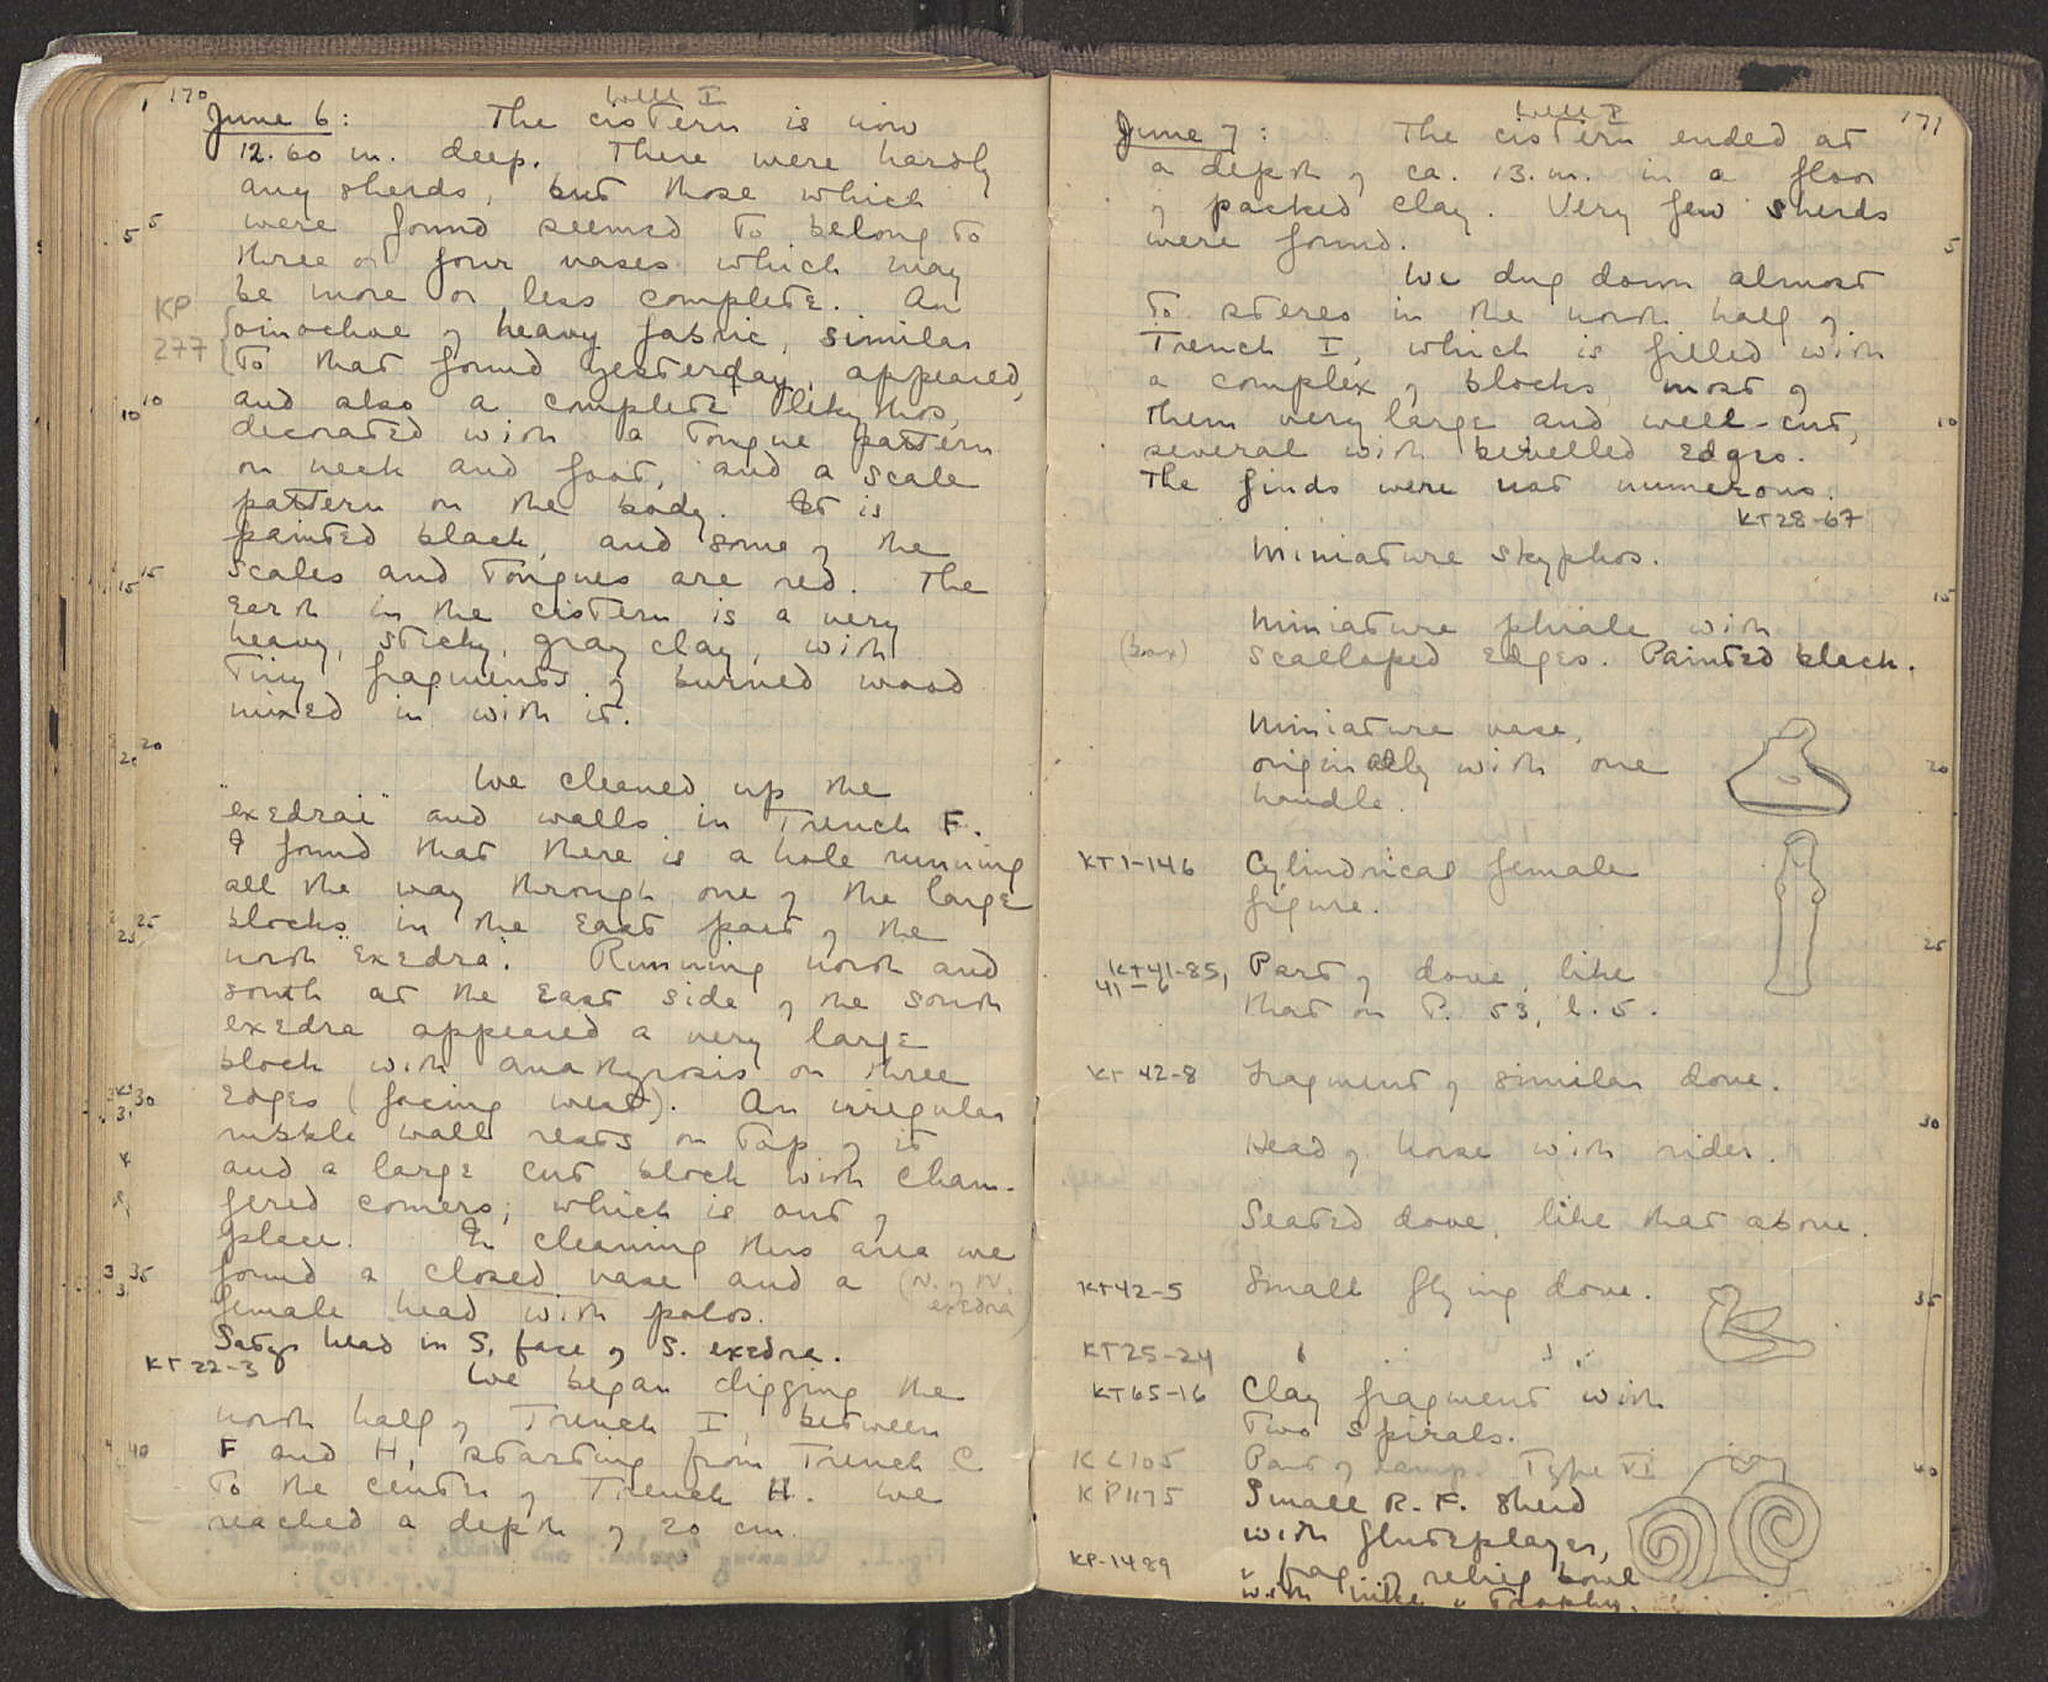 170
Well I
June 6: The cistern is now
12.60 m. deep. There were hardly
any sherds, but those which
5 were found seemed to belong to
three or four vases which may
be more or less complete. An
KP 277
oinochoe of heavy fabric, similar
to that found yesterday, appeared,
10 and also a complete lekythos,
decorated with a tongue pattern
on neck and foot, and a scale
pattern on the body. It is
painted black, and some of the
15 scales and tongues are red. The
earth in the cistern is a very
heavy, sticky, gray clay, with
tiny fragments of burned wood
mixed in with it.
20
We cleaned up the
"exedrai" and walls in Trench F.
I found that there is a hole running
all the way through one of the large
25 blocks in the east part of the
north "exedra". Running north and
south at the east side of the south
exedra appeared a very large
block with anathyrosis on three
30 edges (facing west). An irregular
rubble wall rests on top of it
and a large cut block with cham-
fered corners, which is out of
place. In cleaning this area we
35 found a closed vase and a (N. of N.
female head with polos. exedra)
Satyr head in S. face of S. exedra.
KT 22-3
We began digging the
north half of Trench I, between
40 F and H, starting from Trench C
to the center of Trench H. We
reached a depth of 20 cm.
171
Well I
June 7: The cistern ended at
a depth of ca. 13. m. in a floor
of packed clay. Very few sherds
were found. 5
We dug down almost
to stereo in the north half of
Trench I, which is filled with
a complex of blocks, most of
them very large and well-cut, 10
several with bevelled edges.
The finds were not numerous.
KT28-67
Miniature skyphos.
15
Miniature phiale with
(box) scalloped edges. Painted black.
Miniature vase,
originally with one 20
handle.
KT1-146 Cylindrical female
figure.
25
KT41-85, Part of dove, like
41-6 that on P. 53, l. 5.
KT 42-8 Fragment of similar dove.
30
Head of horse with rider.
Seated dove, like that above.
KT42-5 Small flying dove. 35
KT25-24 " " " "
KT65-16 Clay fragment with
two spirals.
KL105 Part of lamp. Type VI 40
KP1175 Small R.F. sherd
with fluteplayer,
KP-1489 " frag. of relief bowl
with nike " trophy.